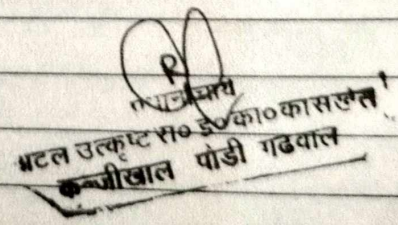 प्रधानाचार्य
अटल उत्कृष्ट रा० इ० का० कासखेत
कल्जीखाल पौडी गढवाल